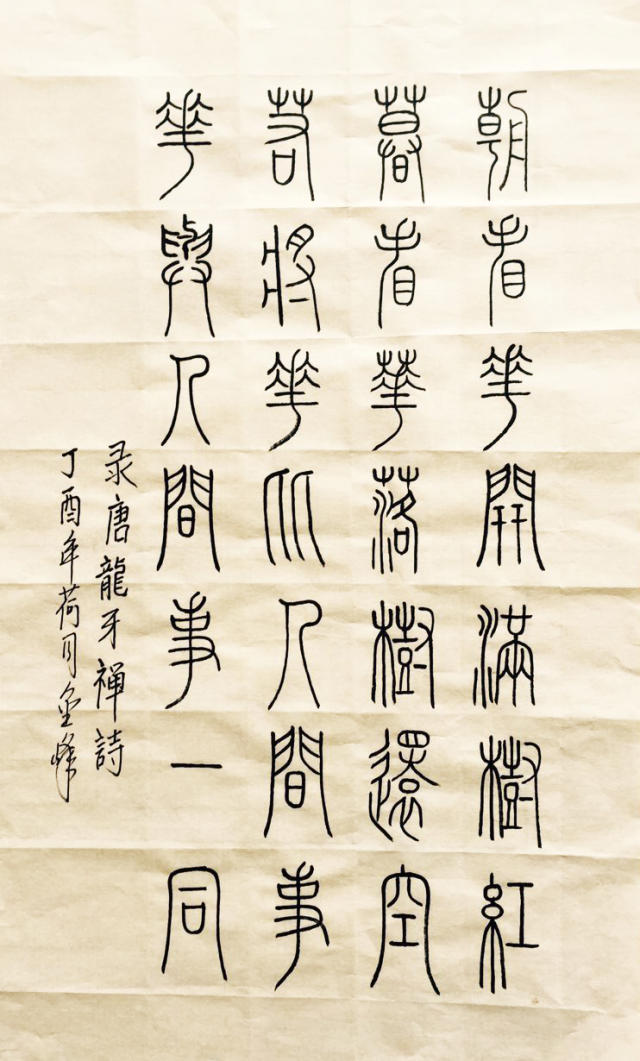 朝看華開滿樹紅
暮看華落樹還空
若將華比人間事
華與人間事一同
录唐龍牙禪詩
丁酉年荷月金峰